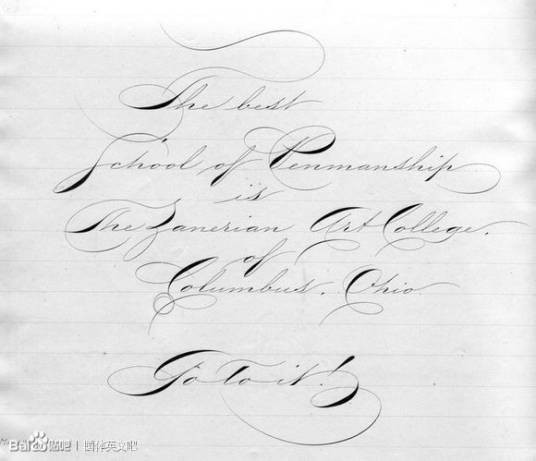 The best
School of Penmanship
is
The Zanerian Art College.
of
Columbus. Ohio
Go To it!
Bai贴吧 | 圆体英文吧